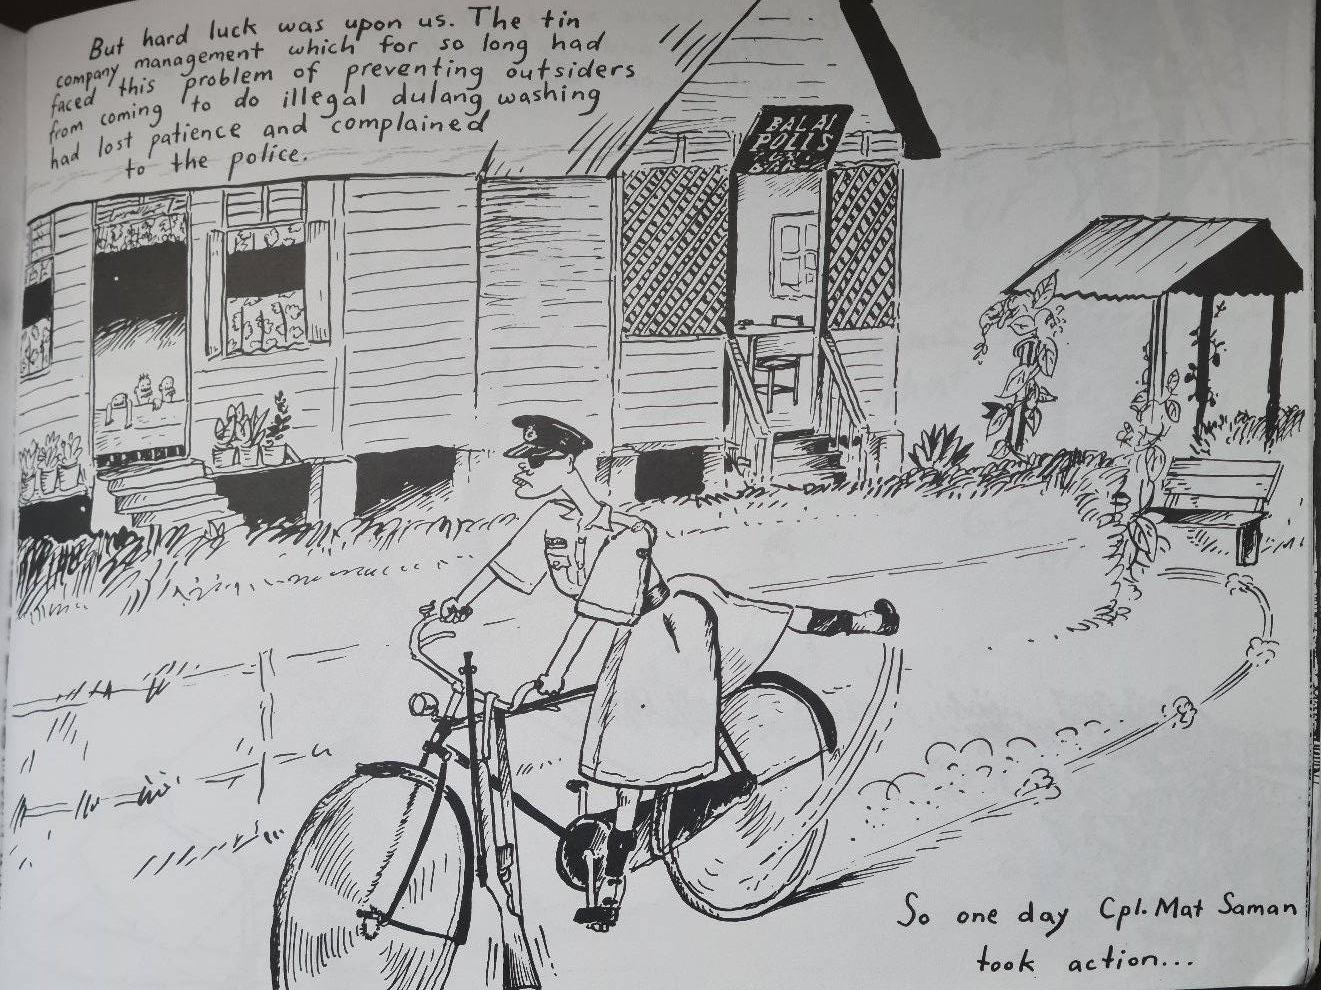 But hard luck was upon us. The tin
company management which for so long had
faced this problem of preventing outsiders
from coming to do illegal dulang washing
had lost patience and complained
to the police.
BALAI
POLIS
So one day Cpl. Mat Saman
took action...